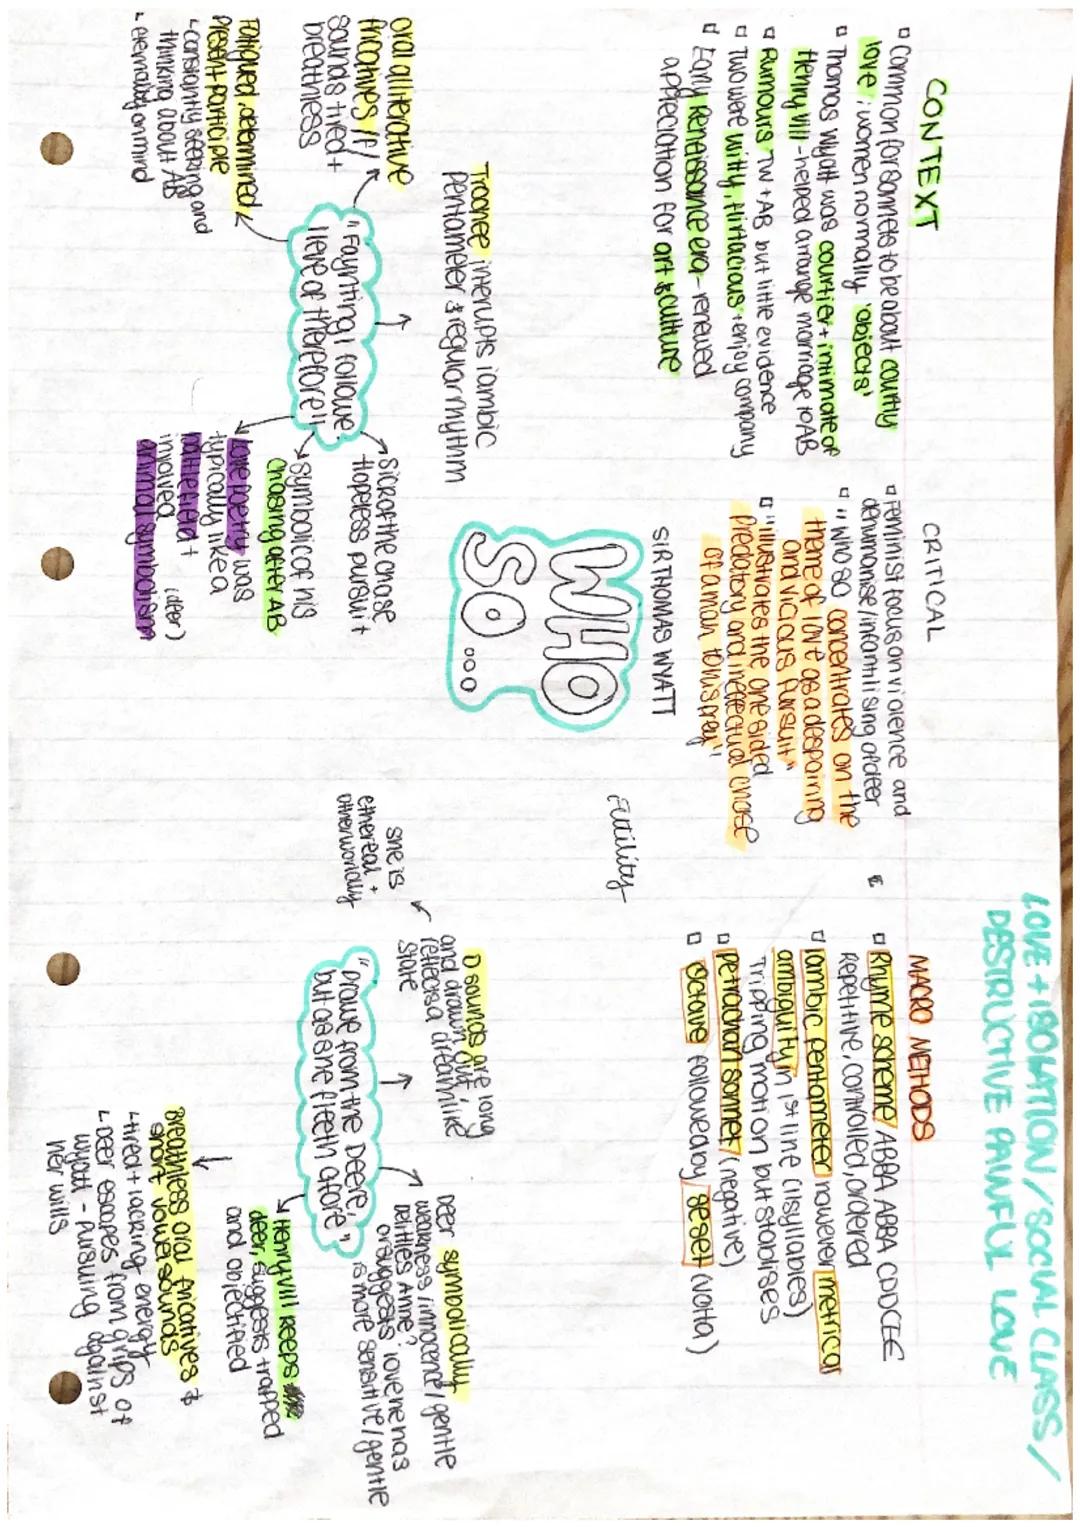 LOVE + ISOLATION / SOCIAL CLASS /
DESTRUCTIVE PAINFUL LOVE
CONTEXT
Common for sonnets to be about courtly
love; women normally 'objects'
Thomas Wyatt was courtier + intimate of
Henry VIII - helped arrange marriage to AB
Rumours TW + AB but little evidence
Two were witty, flirtacious + enjoy company
Early Renaissance era - renewed
appreciation for art & culture
CRITICAL
Feminist focus on violence and
dehumanise infantilising of deer
"Whoso concentrates on the
theme of love as a despairing
and vicious pursuit"
"illustrates the one sided
predatory and ineffectual chase
of a man to his prey"
MACRO METHODS
Rhyme scheme / ABBA ABBA CDDCEE
Repetitive, controlled, ordered
Iambic pentameter however metrical
ambiguity in 1st line (11 syllables)
Tripping motion but stabilises
Petrachan sonnet (negative)
Octave followed by seset (volta)
SIR THOMAS WYATT
WHO
SO...
Futility
Trochee interupts iambic
pentameter & regular rhythm
oral alliterative
fricatives /f/
sounds tired +
breathless
Fatigued, determined
present participle
constantly seeking and
thinking about AB
eternally on mind
"Faynting I followe
I leve of therefore"
Sick of the chase
Hopeless pursuit
Symbolic of his
chasing after AB
Love poetry was
typically like a
battlefield +
involved (deer)
animal symbolism
she is
ethereal +
otherworldly
D sounds are long
and drawn out,
reflects a dreamlike
state
"Drawe from the Deere,
but as she fleeth afore"
Deer symbolically
weakness / innocence / gentle
Belittles Anne?
or suggests love he has
is more sensitive / gentle
Henry VIII keeps
deer, suggests trapped
and objectified
Breathless oral fricatives &
short vowel sounds
tired + lacking energy
Deer escapes from grips of
Wyatt - pursuing against
her wills